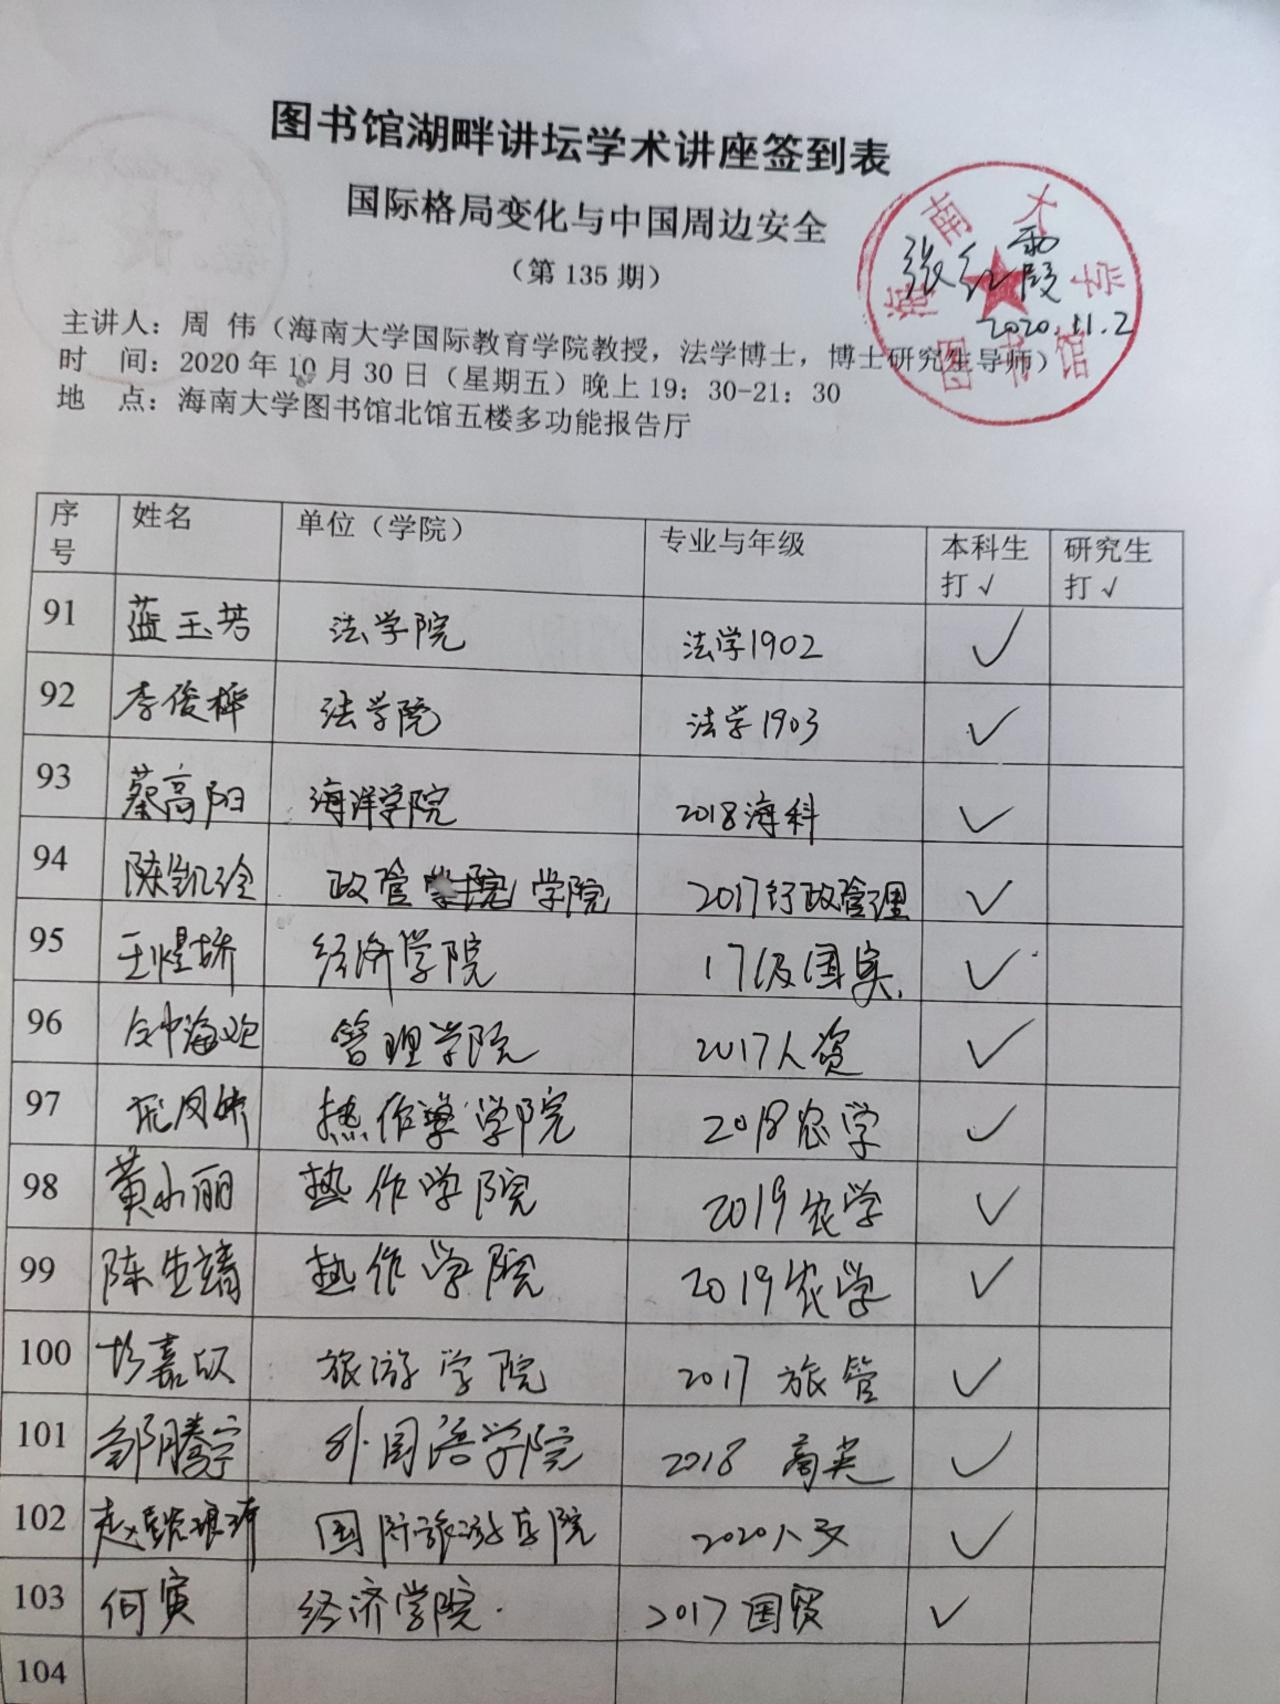 图书馆湖畔讲坛学术讲座签到表
国际格局变化与中国周边安全
（第 135 期）
海南大学图书馆
张红霞
2020.11.2
主讲人：周 伟（海南大学国际教育学院教授，法学博士，博士研究生导师）
时 间：2020 年 10 月 30 日（星期五）晚上 19：30-21：30
地 点：海南大学图书馆北馆五楼多功能报告厅
序号 姓名 单位（学院） 专业与年级 本科生打√ 研究生打√
91 蓝玉芳 法学院 法学1902 ✓
92 李俊桦 法学院 法学1903 ✓
93 蔡高阳 海洋学院 2018海科 ✓
94 陈凯 政管 学院 2017行政管理 ✓
95 王煜娇 经济学院 17级国实 ✓
96 钟海 管理学院 2017人资 ✓
97 凤娇 热作学院 2018农学 ✓
98 黄水丽 热作学院 2019农学 ✓
99 陈生靖 热作学院 2019农学 ✓
100 嘉欣 旅游学院 2017 旅管 ✓
101 邹腾宇 外国语学院 2018 商英 ✓
102 赵 国际旅游学院 2020人文 ✓
103 何寅 经济学院. 2017国贸 ✓
104